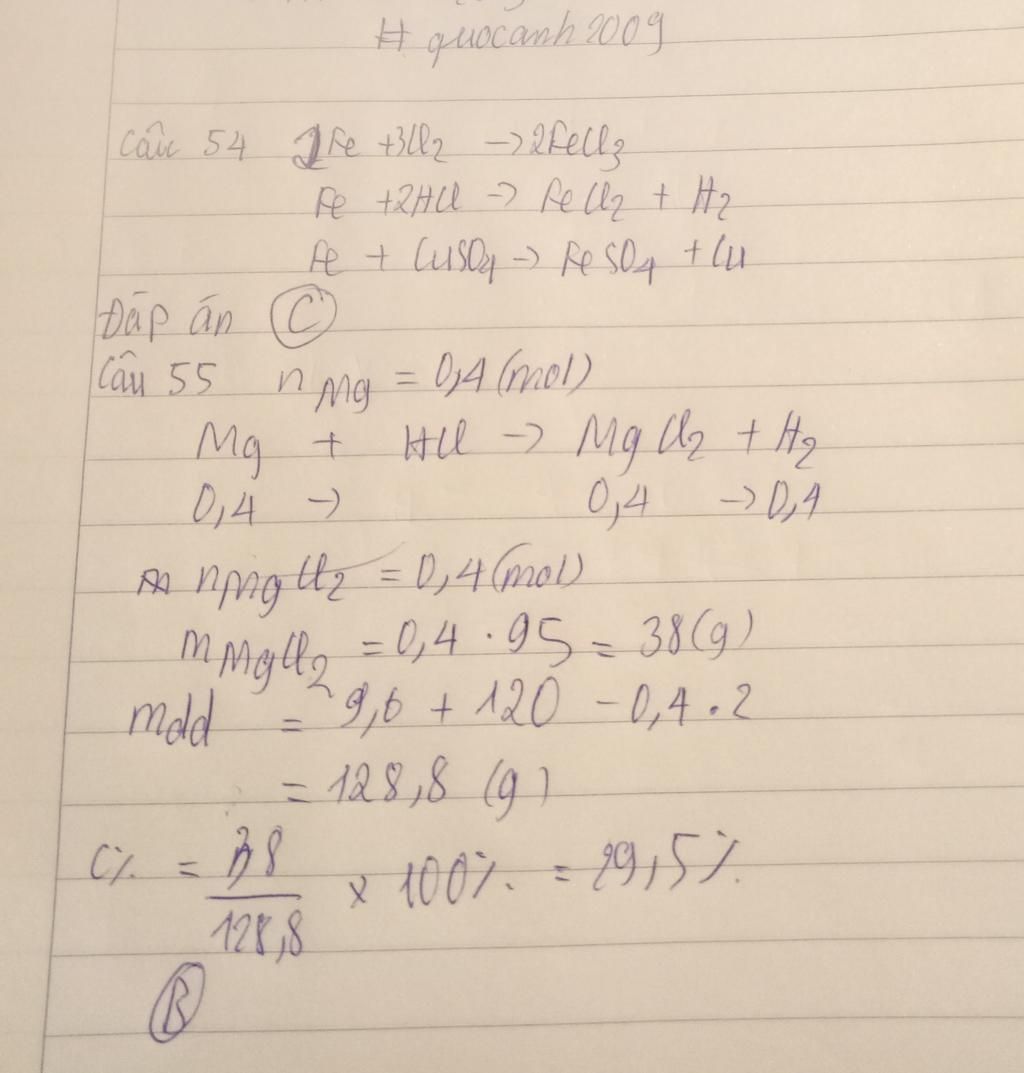 # quocanh2009
Câu 54 2Fe +3Cl2 → 2FeCl3
Fe +2HCl → FeCl2 + H2
Fe + CuSO4 → FeSO4 + Cu
Đáp án C
Câu 55 n Mg = 0,4 (mol)
Mg + HCl → MgCl2 + H2
0,4 → 0,4 → 0,4
nMgCl2 = 0,4 (mol)
m MgCl2 = 0,4 . 95 = 38 (g)
mdd = 9,6 + 120 - 0,4 . 2
= 128,8 (g)
C% = 38/128,8 x 100% = 29,5%
B